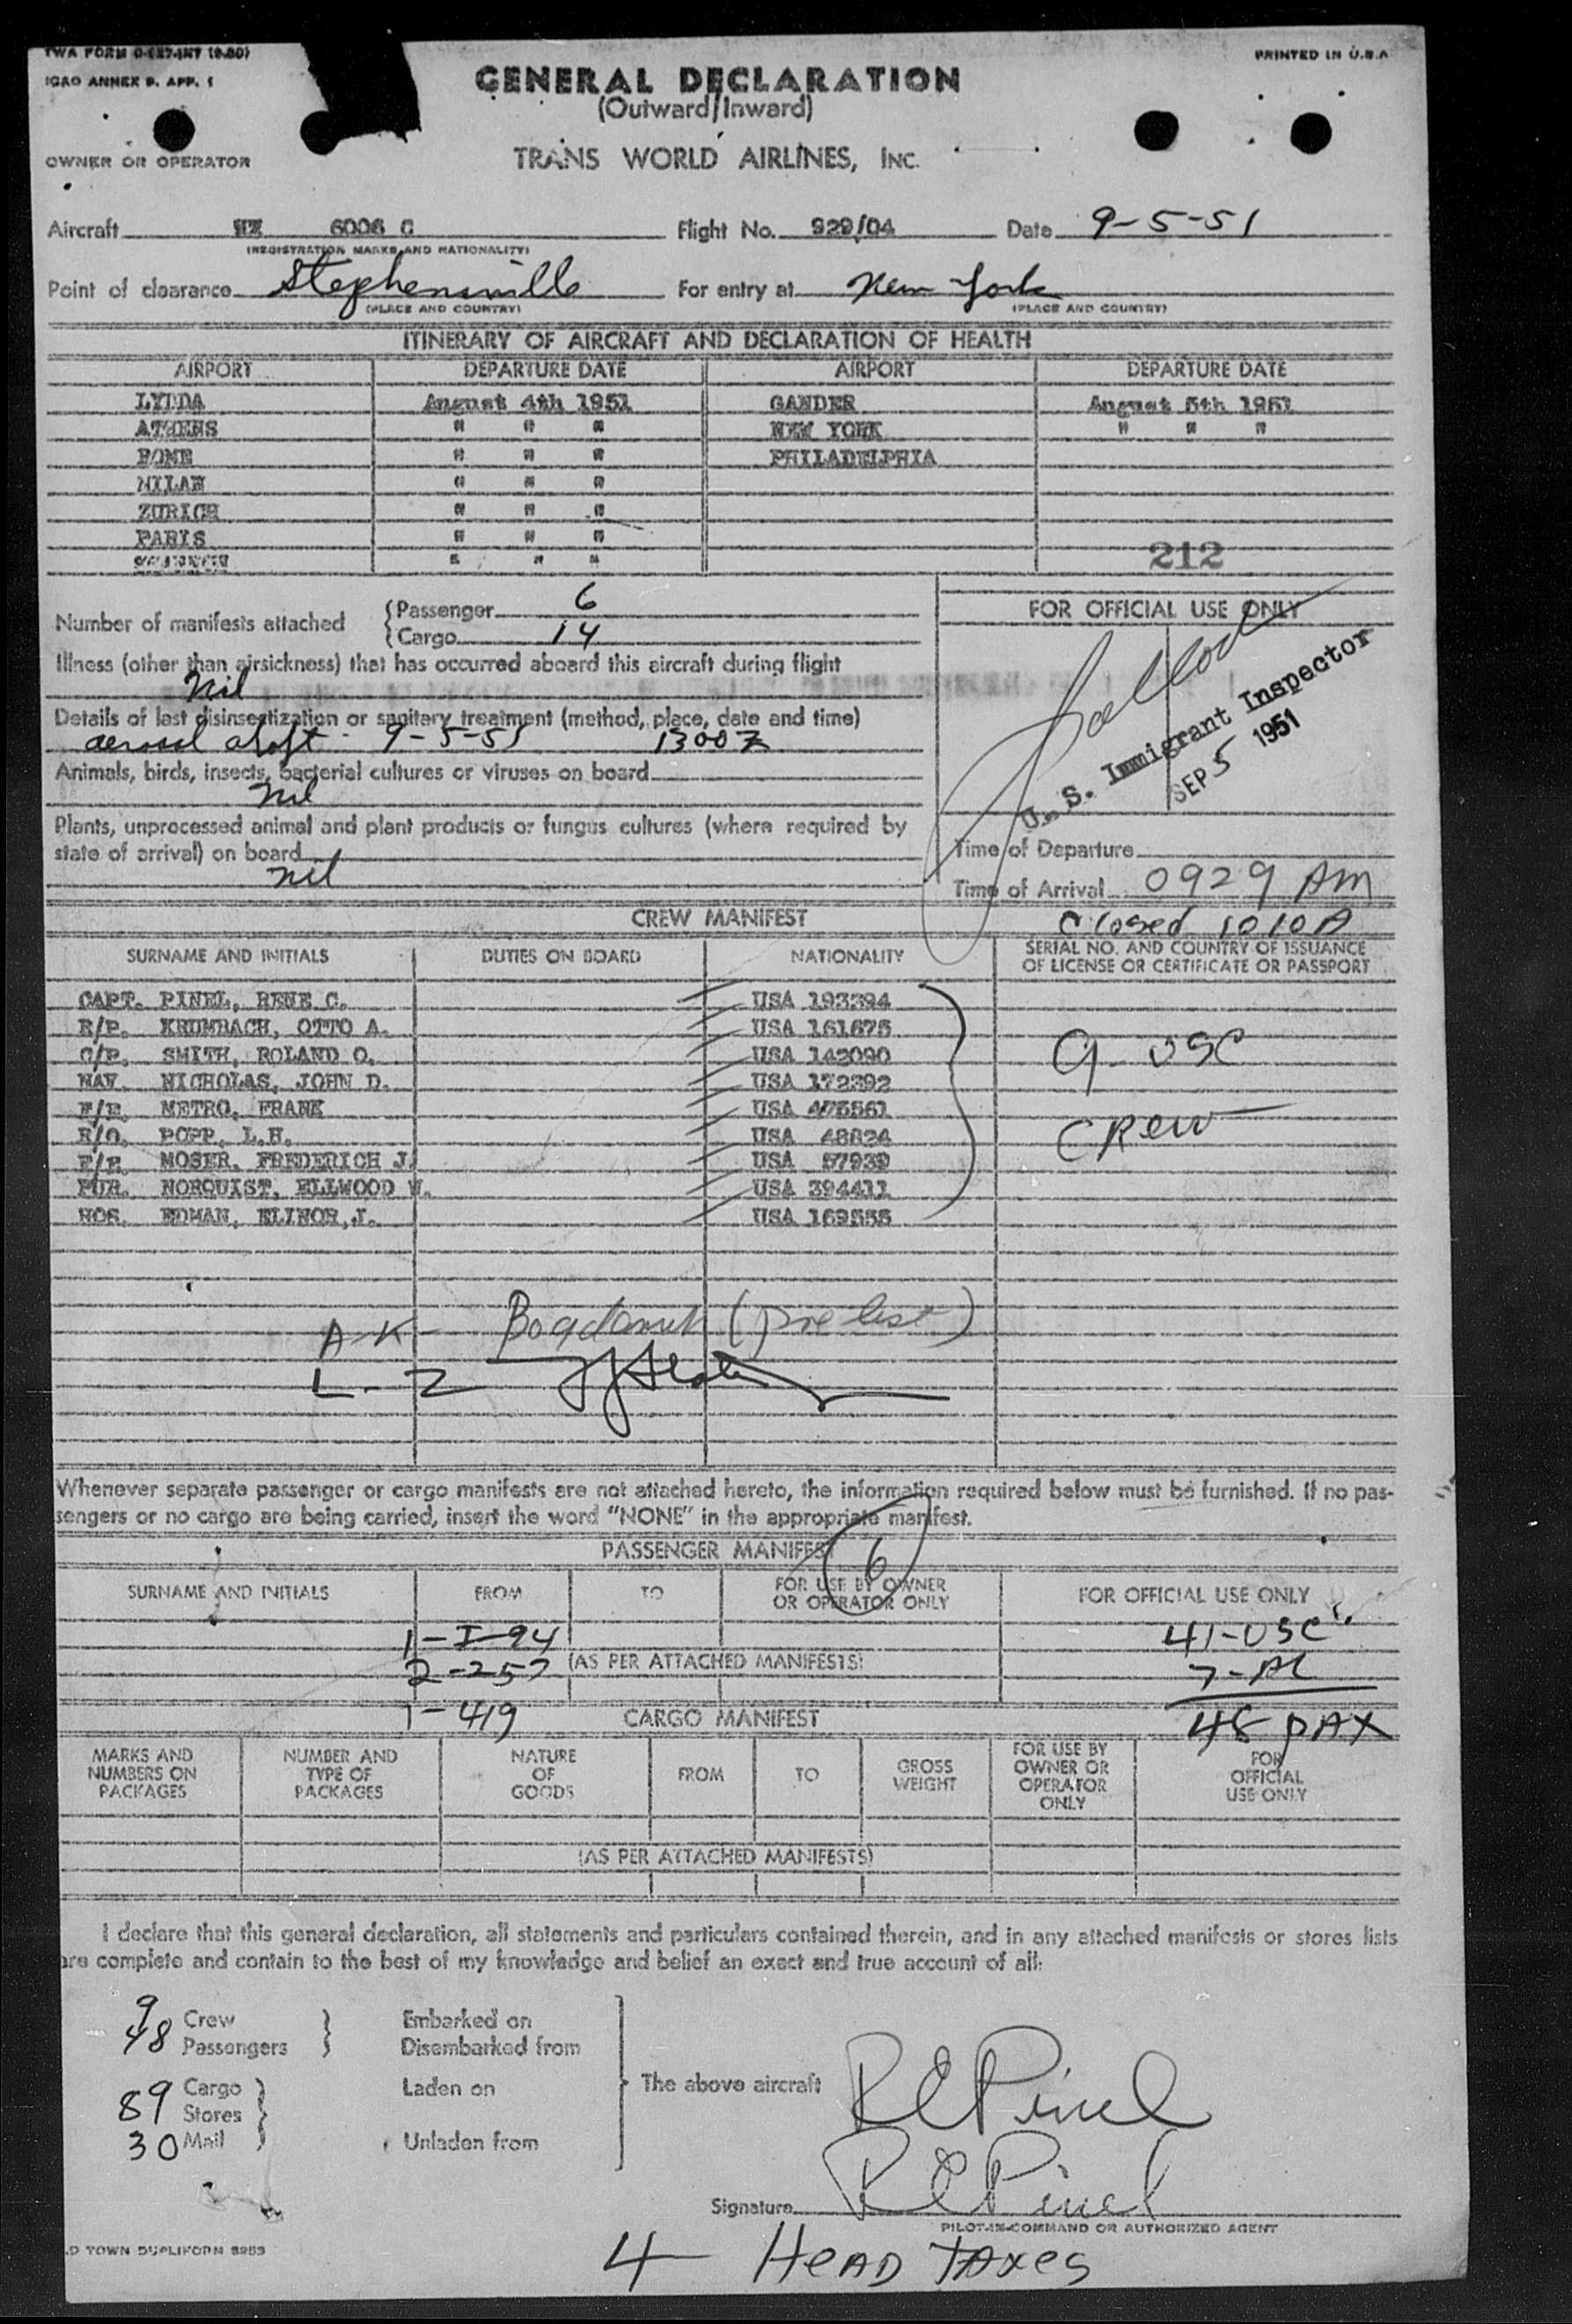 TWA FORM O-627-INT (9-50)
PRINTED IN U.S.A
ICAO ANNEX 9. APP. 1
GENERAL DECLARATION
(Outward/Inward)
OWNER OR OPERATOR
TRANS WORLD AIRLINES, INC.
Aircraft 6006 C Flight No. 929/04 Date 9-5-51
(REGISTRATION MARKS AND NATIONALITY)
Point of clearance Stephenville For entry at New York
(PLACE AND COUNTRY) (PLACE AND COUNTRY)
ITINERARY OF AIRCRAFT AND DECLARATION OF HEALTH
AIRPORT DEPARTURE DATE AIRPORT DEPARTURE DATE
LYDDA August 4th 1951 GANDER August 5th 1951
ATHENS " " " NEW YORK " " "
ROME " " " PHILADELPHIA
MILAN " " "
ZURICH " " "
PARIS " " "
SHANNON " " "
212
Number of manifests attached
Passenger 6
Cargo 14
FOR OFFICIAL USE ONLY
Illness (other than airsickness) that has occurred aboard this aircraft during flight
Nil
U. S. Immigrant Inspector
SEP 5 1951
Details of last disinsectization or sanitary treatment (method, place, date and time)
aerosol aloft 9-5-51 1300Z
Animals, birds, insects, bacterial cultures or viruses on board
Nil
Plants, unprocessed animal and plant products or fungus cultures (where required by
state of arrival) on board
nil
Time of Departure
Time of Arrival 0929 AM
Closed 1010A
CREW MANIFEST
SURNAME AND INITIALS DUTIES ON BOARD NATIONALITY SERIAL NO. AND COUNTRY OF ISSUANCE
OF LICENSE OR CERTIFICATE OR PASSPORT
CAPT. PINEL, RENE C. USA 193394
R/P. KRUMBACH, OTTO A. USA 161675
C/P. SMITH, ROLAND O. USA 142090
NAV. NICHOLAS, JOHN D. USA 172392
F/E. METRO, FRANK USA 475561
R/O. POPP, L.H. USA 48824
F/E. MOSER, FREDERICH J. USA 57939
PUR. NORQUIST, ELLWOOD W. USA 394411
HOS. EDMAN, ELINOR, J. USA 169555
9 USC
CREW
A-K- (pre list)
L-Z
Whenever separate passenger or cargo manifests are not attached hereto, the information required below must be furnished. If no pas-
sengers or no cargo are being carried, insert the word "NONE" in the appropriate manifest.
PASSENGER MANIFEST
6
SURNAME AND INITIALS FROM TO FOR USE BY OWNER
OR OPERATOR ONLY FOR OFFICIAL USE ONLY
1-I-94 41-USC
2-257 (AS PER ATTACHED MANIFESTS) 7-AL
1-419 CARGO MANIFEST 48 PAX
MARKS AND
NUMBERS ON
PACKAGES
NUMBER AND
TYPE OF
PACKAGES
NATURE
OF
GOODS
FROM
TO
GROSS
WEIGHT
FOR USE BY
OWNER OR
OPERATOR
ONLY
FOR
OFFICIAL
USE ONLY
(AS PER ATTACHED MANIFESTS)
I declare that this general declaration, all statements and particulars contained therein, and in any attached manifests or stores lists
are complete and contain to the best of my knowledge and belief an exact and true account of all:
9 Crew Embarked on
48 Passengers Disembarked from
The above aircraft R C Pinel
89 Cargo Laden on
Stores
30 Mail Unladen from
Signature R C Pinel
PILOT-IN-COMMAND OR AUTHORIZED AGENT
D TOWN DUPLIFORM 8253
4 HEAD TAXES